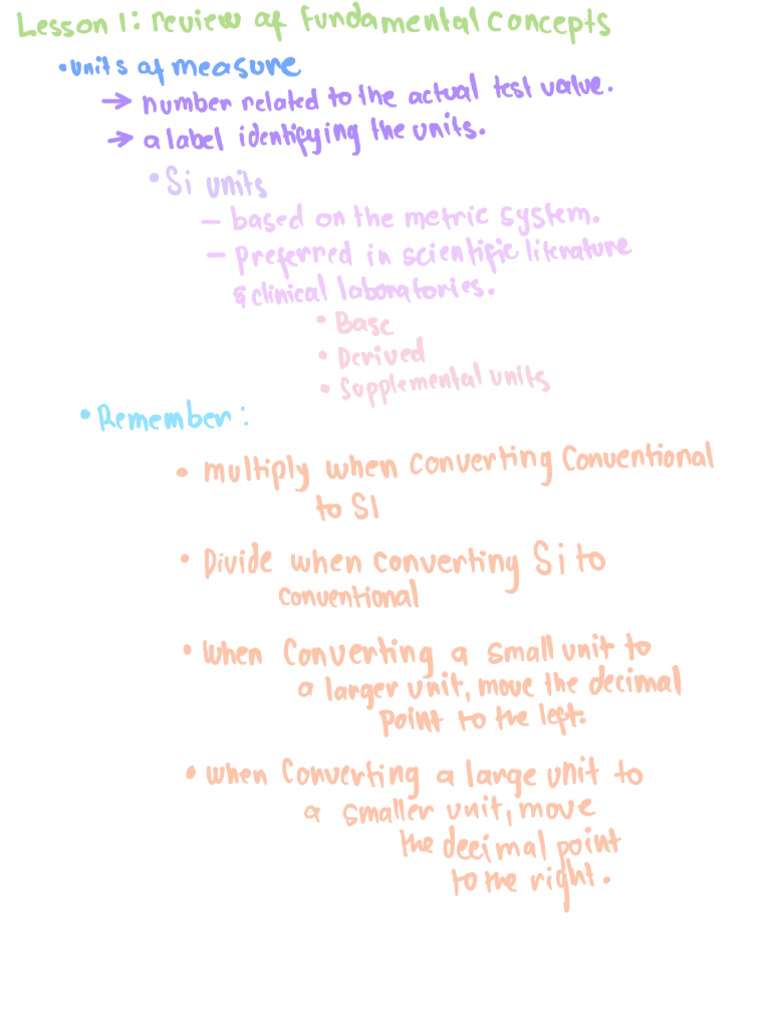 Lesson 1: review of fundamental concepts
• units of measure
→ number related to the actual test value.
→ a label identifying the units.
• Si units
– based on the metric system.
– Preferred in scientific literature
& clinical laboratories.
• Base
• Derived
• Supplemental units
• Remember:
• multiply when converting conventional
to SI
• Divide when converting Si to
conventional
• when converting a small unit to
a larger unit, move the decimal
point to the left.
• when converting a large unit to
a smaller unit, move
the decimal point
to the right.